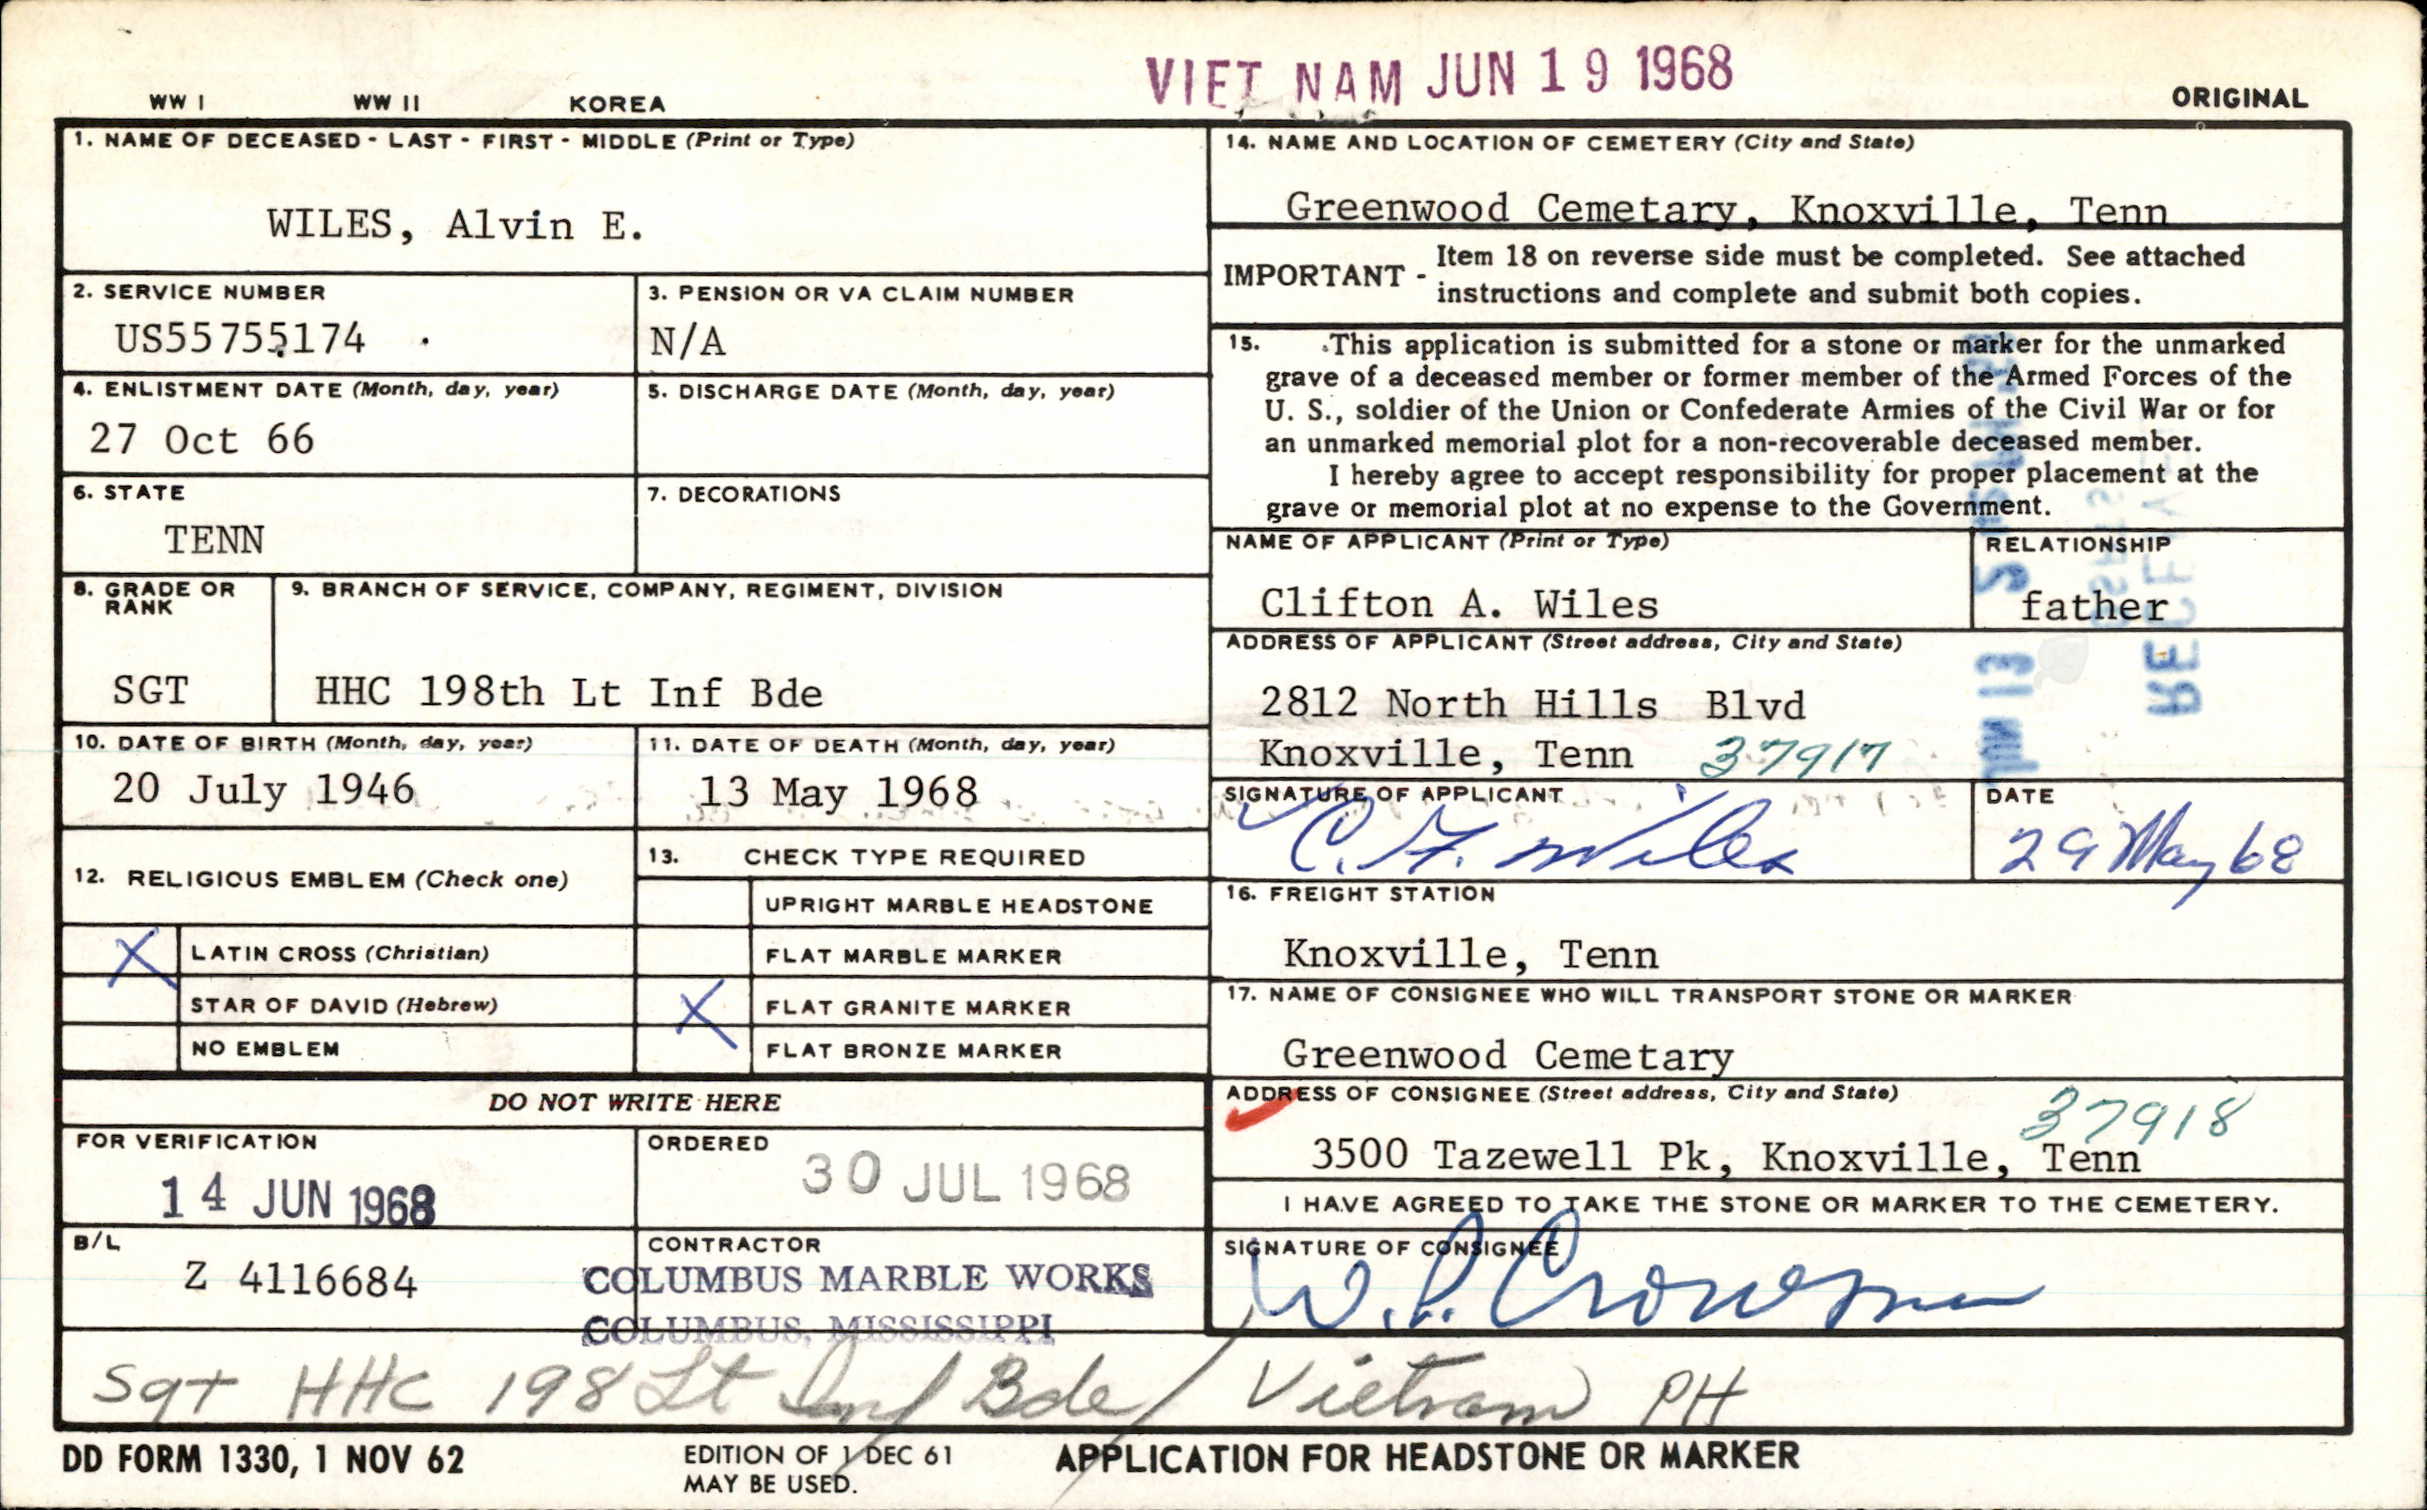 VIET NAM JUN 19 1968
WW I WW II KOREA ORIGINAL
1. NAME OF DECEASED - LAST - FIRST - MIDDLE (Print or Type)
WILES, Alvin E.
2. SERVICE NUMBER
US55755174
3. PENSION OR VA CLAIM NUMBER
N/A
4. ENLISTMENT DATE (Month, day, year)
27 Oct 66
5. DISCHARGE DATE (Month, day, year)
6. STATE
TENN
7. DECORATIONS
8. GRADE OR
RANK
SGT
9. BRANCH OF SERVICE, COMPANY, REGIMENT, DIVISION
HHC 198th Lt Inf Bde
10. DATE OF BIRTH (Month, day, year)
20 July 1946
11. DATE OF DEATH (Month, day, year)
13 May 1968
12. RELIGIOUS EMBLEM (Check one)
X LATIN CROSS (Christian)
STAR OF DAVID (Hebrew)
NO EMBLEM
13. CHECK TYPE REQUIRED
UPRIGHT MARBLE HEADSTONE
FLAT MARBLE MARKER
X FLAT GRANITE MARKER
FLAT BRONZE MARKER
DO NOT WRITE HERE
FOR VERIFICATION
14 JUN 1968
ORDERED
30 JUL 1968
B/L
Z 4116684
CONTRACTOR
COLUMBUS MARBLE WORKS
COLUMBUS, MISSISSIPPI
14. NAME AND LOCATION OF CEMETERY (City and State)
Greenwood Cemetary, Knoxville, Tenn
IMPORTANT - Item 18 on reverse side must be completed. See attached
instructions and complete and submit both copies.
15. This application is submitted for a stone or marker for the unmarked
grave of a deceased member or former member of the Armed Forces of the
U. S., soldier of the Union or Confederate Armies of the Civil War or for
an unmarked memorial plot for a non-recoverable deceased member.
I hereby agree to accept responsibility for proper placement at the
grave or memorial plot at no expense to the Government.
NAME OF APPLICANT (Print or Type)
Clifton A. Wiles
RELATIONSHIP
father
ADDRESS OF APPLICANT (Street address, City and State)
2812 North Hills Blvd
Knoxville, Tenn 37917
SIGNATURE OF APPLICANT
C. A. Wiles
DATE
29 May 68
16. FREIGHT STATION
Knoxville, Tenn
17. NAME OF CONSIGNEE WHO WILL TRANSPORT STONE OR MARKER
Greenwood Cemetary
ADDRESS OF CONSIGNEE (Street address, City and State)
37918
3500 Tazewell Pk, Knoxville, Tenn
I HAVE AGREED TO TAKE THE STONE OR MARKER TO THE CEMETERY.
SIGNATURE OF CONSIGNEE
Sgt HHC 198 Lt Inf Bde / Vietnam PH
DD FORM 1330, 1 NOV 62
EDITION OF 1 DEC 61
MAY BE USED.
APPLICATION FOR HEADSTONE OR MARKER